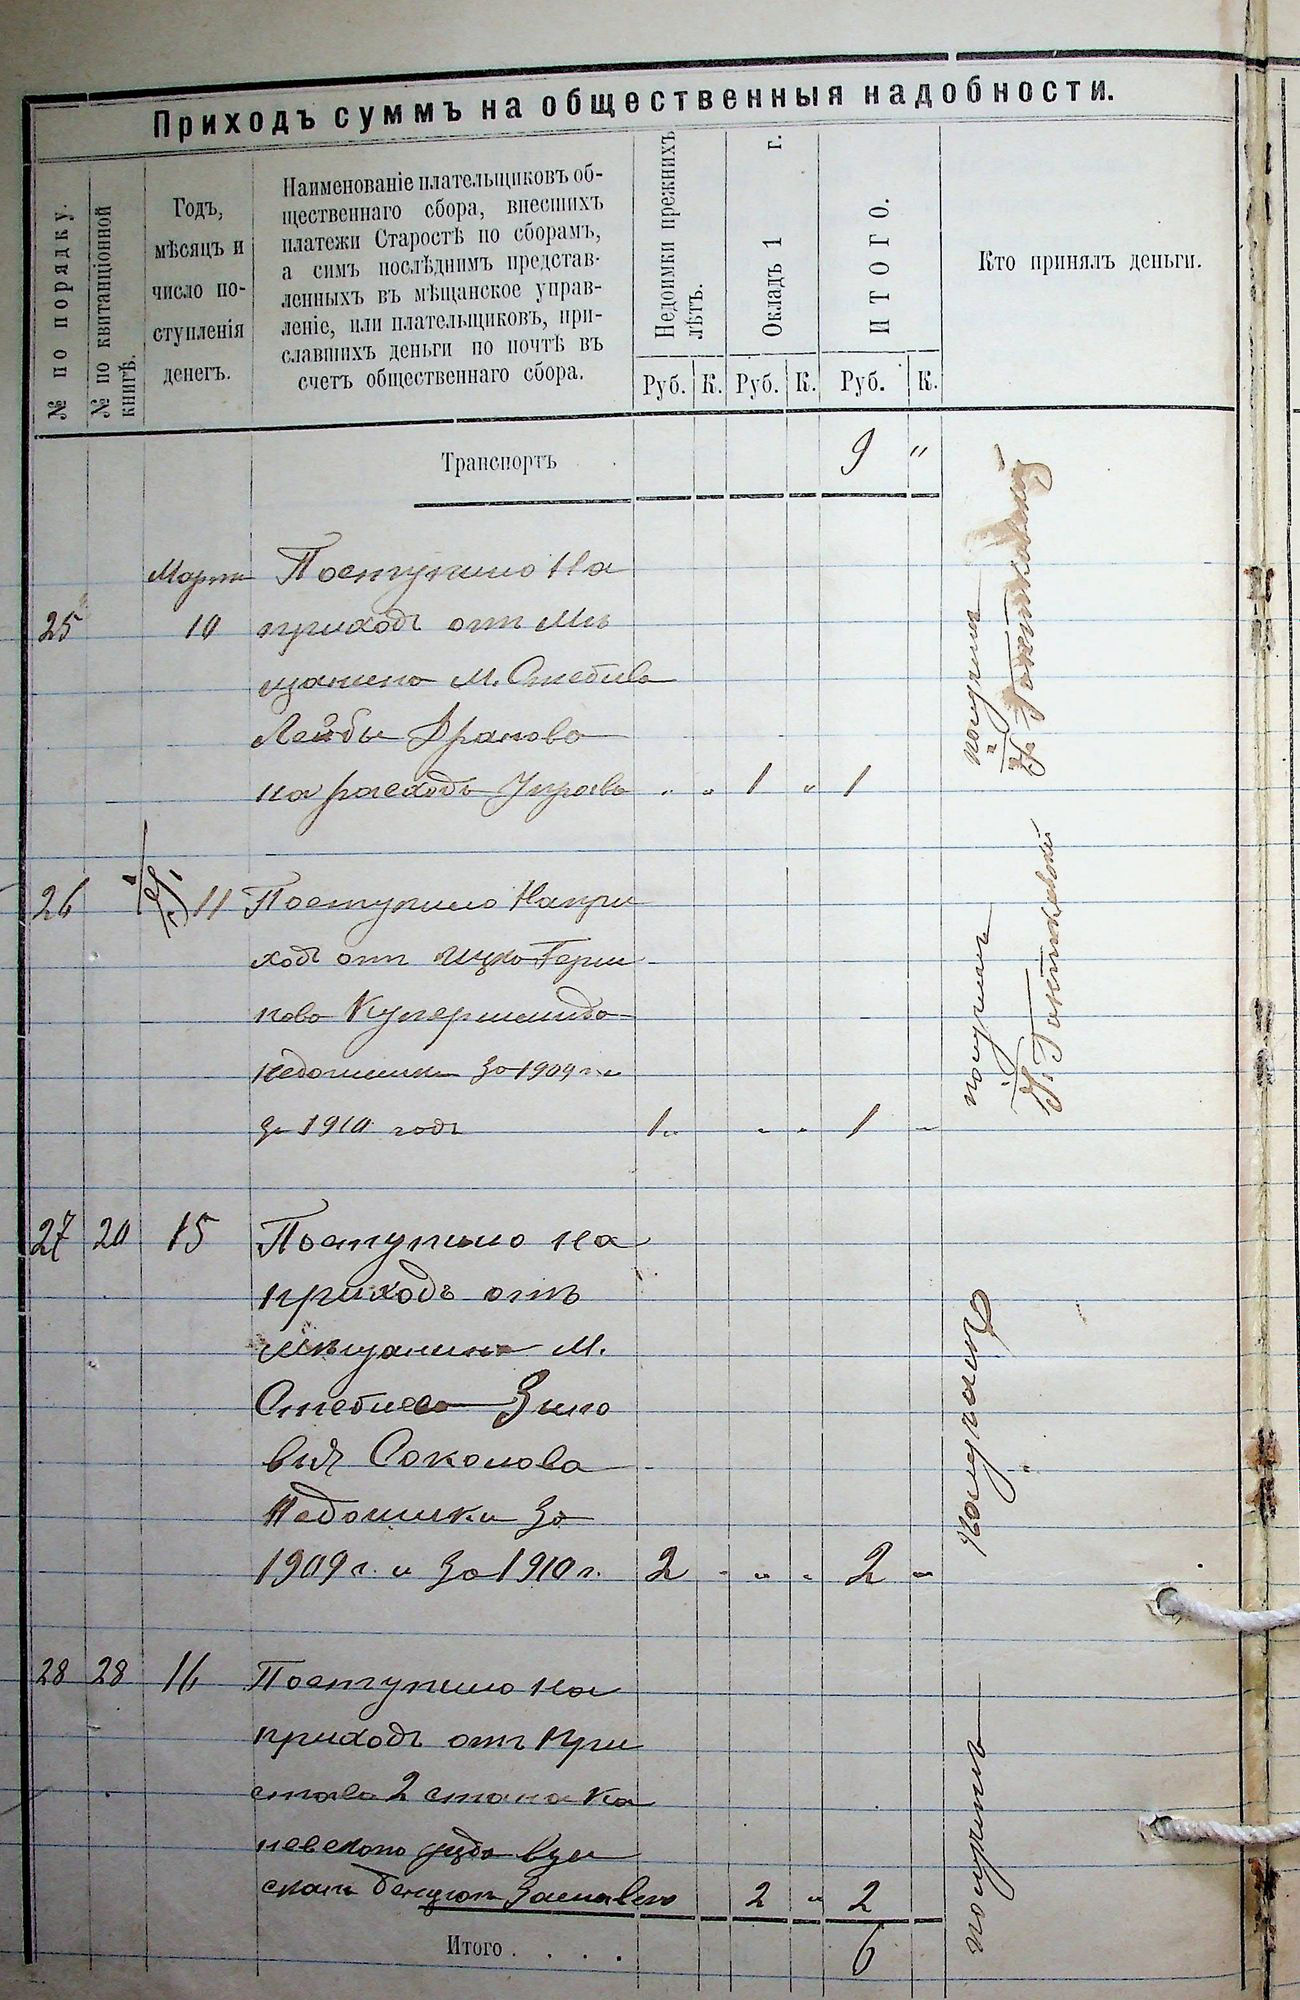 Приходъ суммъ на общественныя надобности.
№ по порядку.
№ по квитанціонной
книгѣ.
Годъ,
мѣсяцъ и
число по-
ступленія
денегъ.
Наименованіе плательщиковъ об-
щественнаго сбора, внесшихъ
платежи Старостѣ по сборамъ,
а симъ послѣднимъ представ-
ленныхъ въ мѣщанское управ-
леніе, или плательщиковъ, при-
славшихъ деньги по почтѣ въ
счетъ общественнаго сбора.
Недоимки прежнихъ
лѣтъ.
Окладъ 1 г.
ИТОГО.
Кто принялъ деньги.
Руб. К. Руб. К. Руб. К.
Транспортъ 9 "
Марта Поступило На
25 10 приходъ отъ Мѣ
щанина М. Стеблева
Лейбы
на расходъ Управы " " 1 " 1
получилъ
26 11 Поступило На при
ходъ отъ Ицко Герш
кова Купершмидта
недоимки За 1909 г. и
За 1910 годъ 1 " " " 1 "
получилъ
27 20 15 Поступило на
приходъ отъ
мѣщанина М.
Стеблева Зино
вія Соколова
Недоимки За
1909 г. и За 1910 г. 2 " " " 2 "
получилъ
28 28 16 Поступило на
приходъ отъ При
става 2 стана Ка
невскаго уѣзда взы
скан. 2 " 2
получилъ
Итого . . . . 6